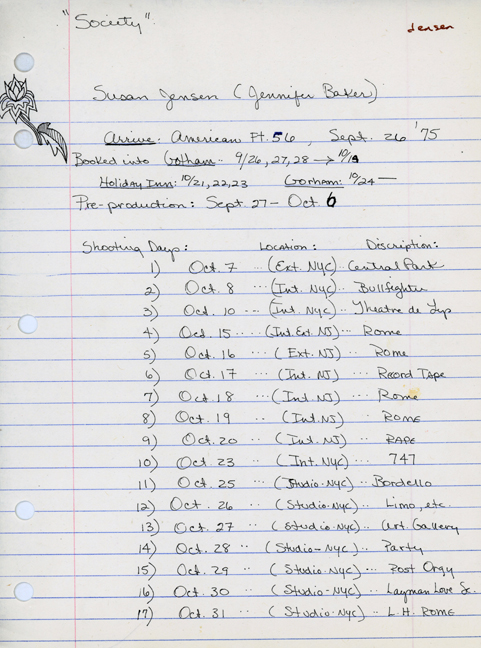 "Society"
Jensen
Susan Jensen (Jennifer Baker)
Arrive: American Flt. 56, Sept. 26 '75
Booked into Gotham - 9/26, 27, 28 → 10/19
Holiday Inn: 10/21, 22, 23 Gorham: 10/24 —
Pre-production: Sept 27 - Oct 6
Shooting Days: Location: Discription:
1) Oct. 7 ·· (Ext. NYC) ·· Central Park
2) Oct. 8 ·· (Int. NYC) ·· Bullfighter
3) Oct. 10 ·· (Int. NYC) ·· Theatre de Lys
4) Oct. 15 ·· (Int. Ext. NJ) ·· Rome
5) Oct. 16 ·· (Ext. NJ) ·· Rome
6) Oct. 17 ·· (Int. NJ) ·· Record Tape
7) Oct. 18 ·· (Int. NJ) ·· Rome
8) Oct. 19 ·· (Int. NJ) ·· Rome
9) Oct. 20 ·· (Int. NJ) ·· RAPE
10) Oct. 23 ·· (Int. NYC) ·· 747
11) Oct. 25 ·· (Studio-NYC) ·· Bordello
12) Oct. 26 ·· (Studio-NYC) ·· Limo, etc.
13) Oct. 27 ·· (Studio-NYC) ·· Art. Gallery
14) Oct. 28 ·· (Studio-NYC) ·· Party
15) Oct. 29 ·· (Studio-NYC) ·· Post Orgy
16) Oct. 30 ·· (Studio-NYC) ·· Layman Love Sc.
17) Oct. 31 ·· (Studio-NYC) ·· L.H. ROME